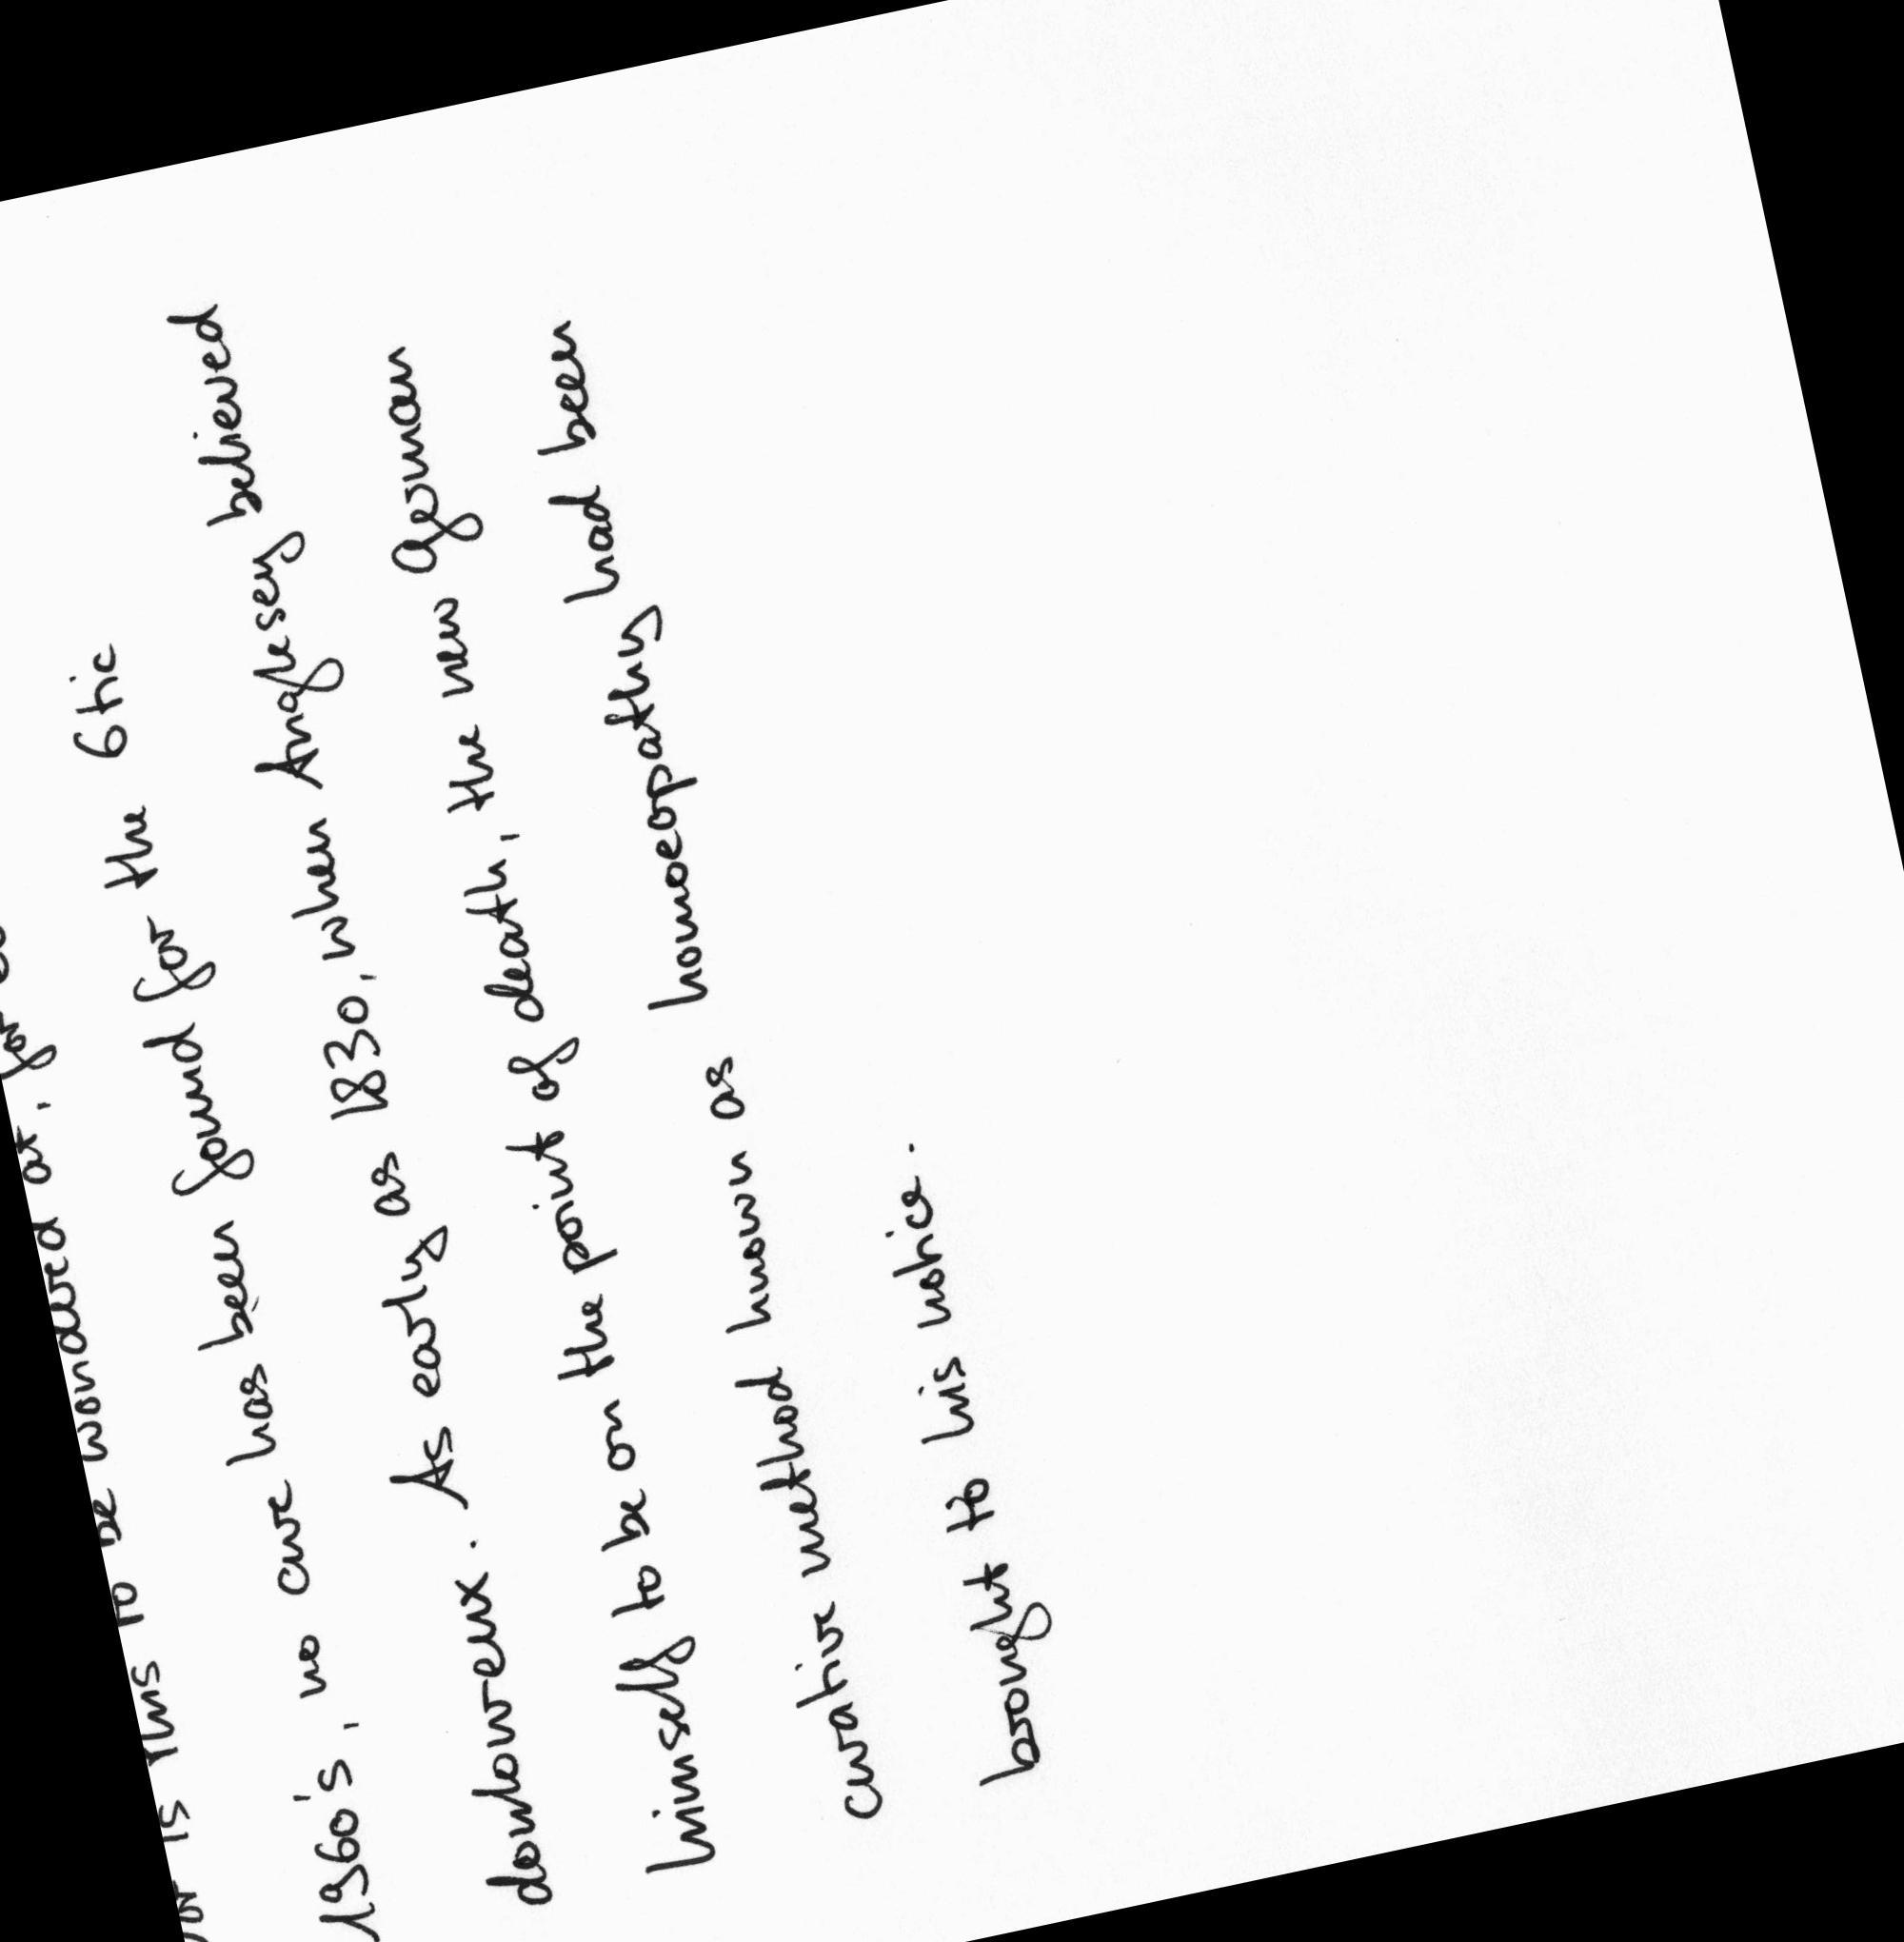 is thus to be wondered at, for
1960's, no cure has been found for the tic
douloureux. As early as 1830, when Anglesey believed
himself to be on the point of death, the new German
curative method known as homoeopathy had been
brought to his notice.